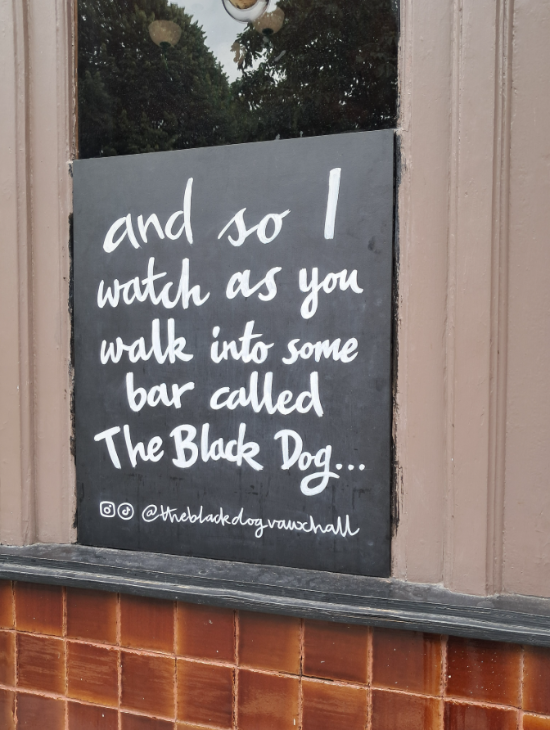 and so I
watch as you
walk into some
bar called
The Black Dog...
@theblackdogvauxhall